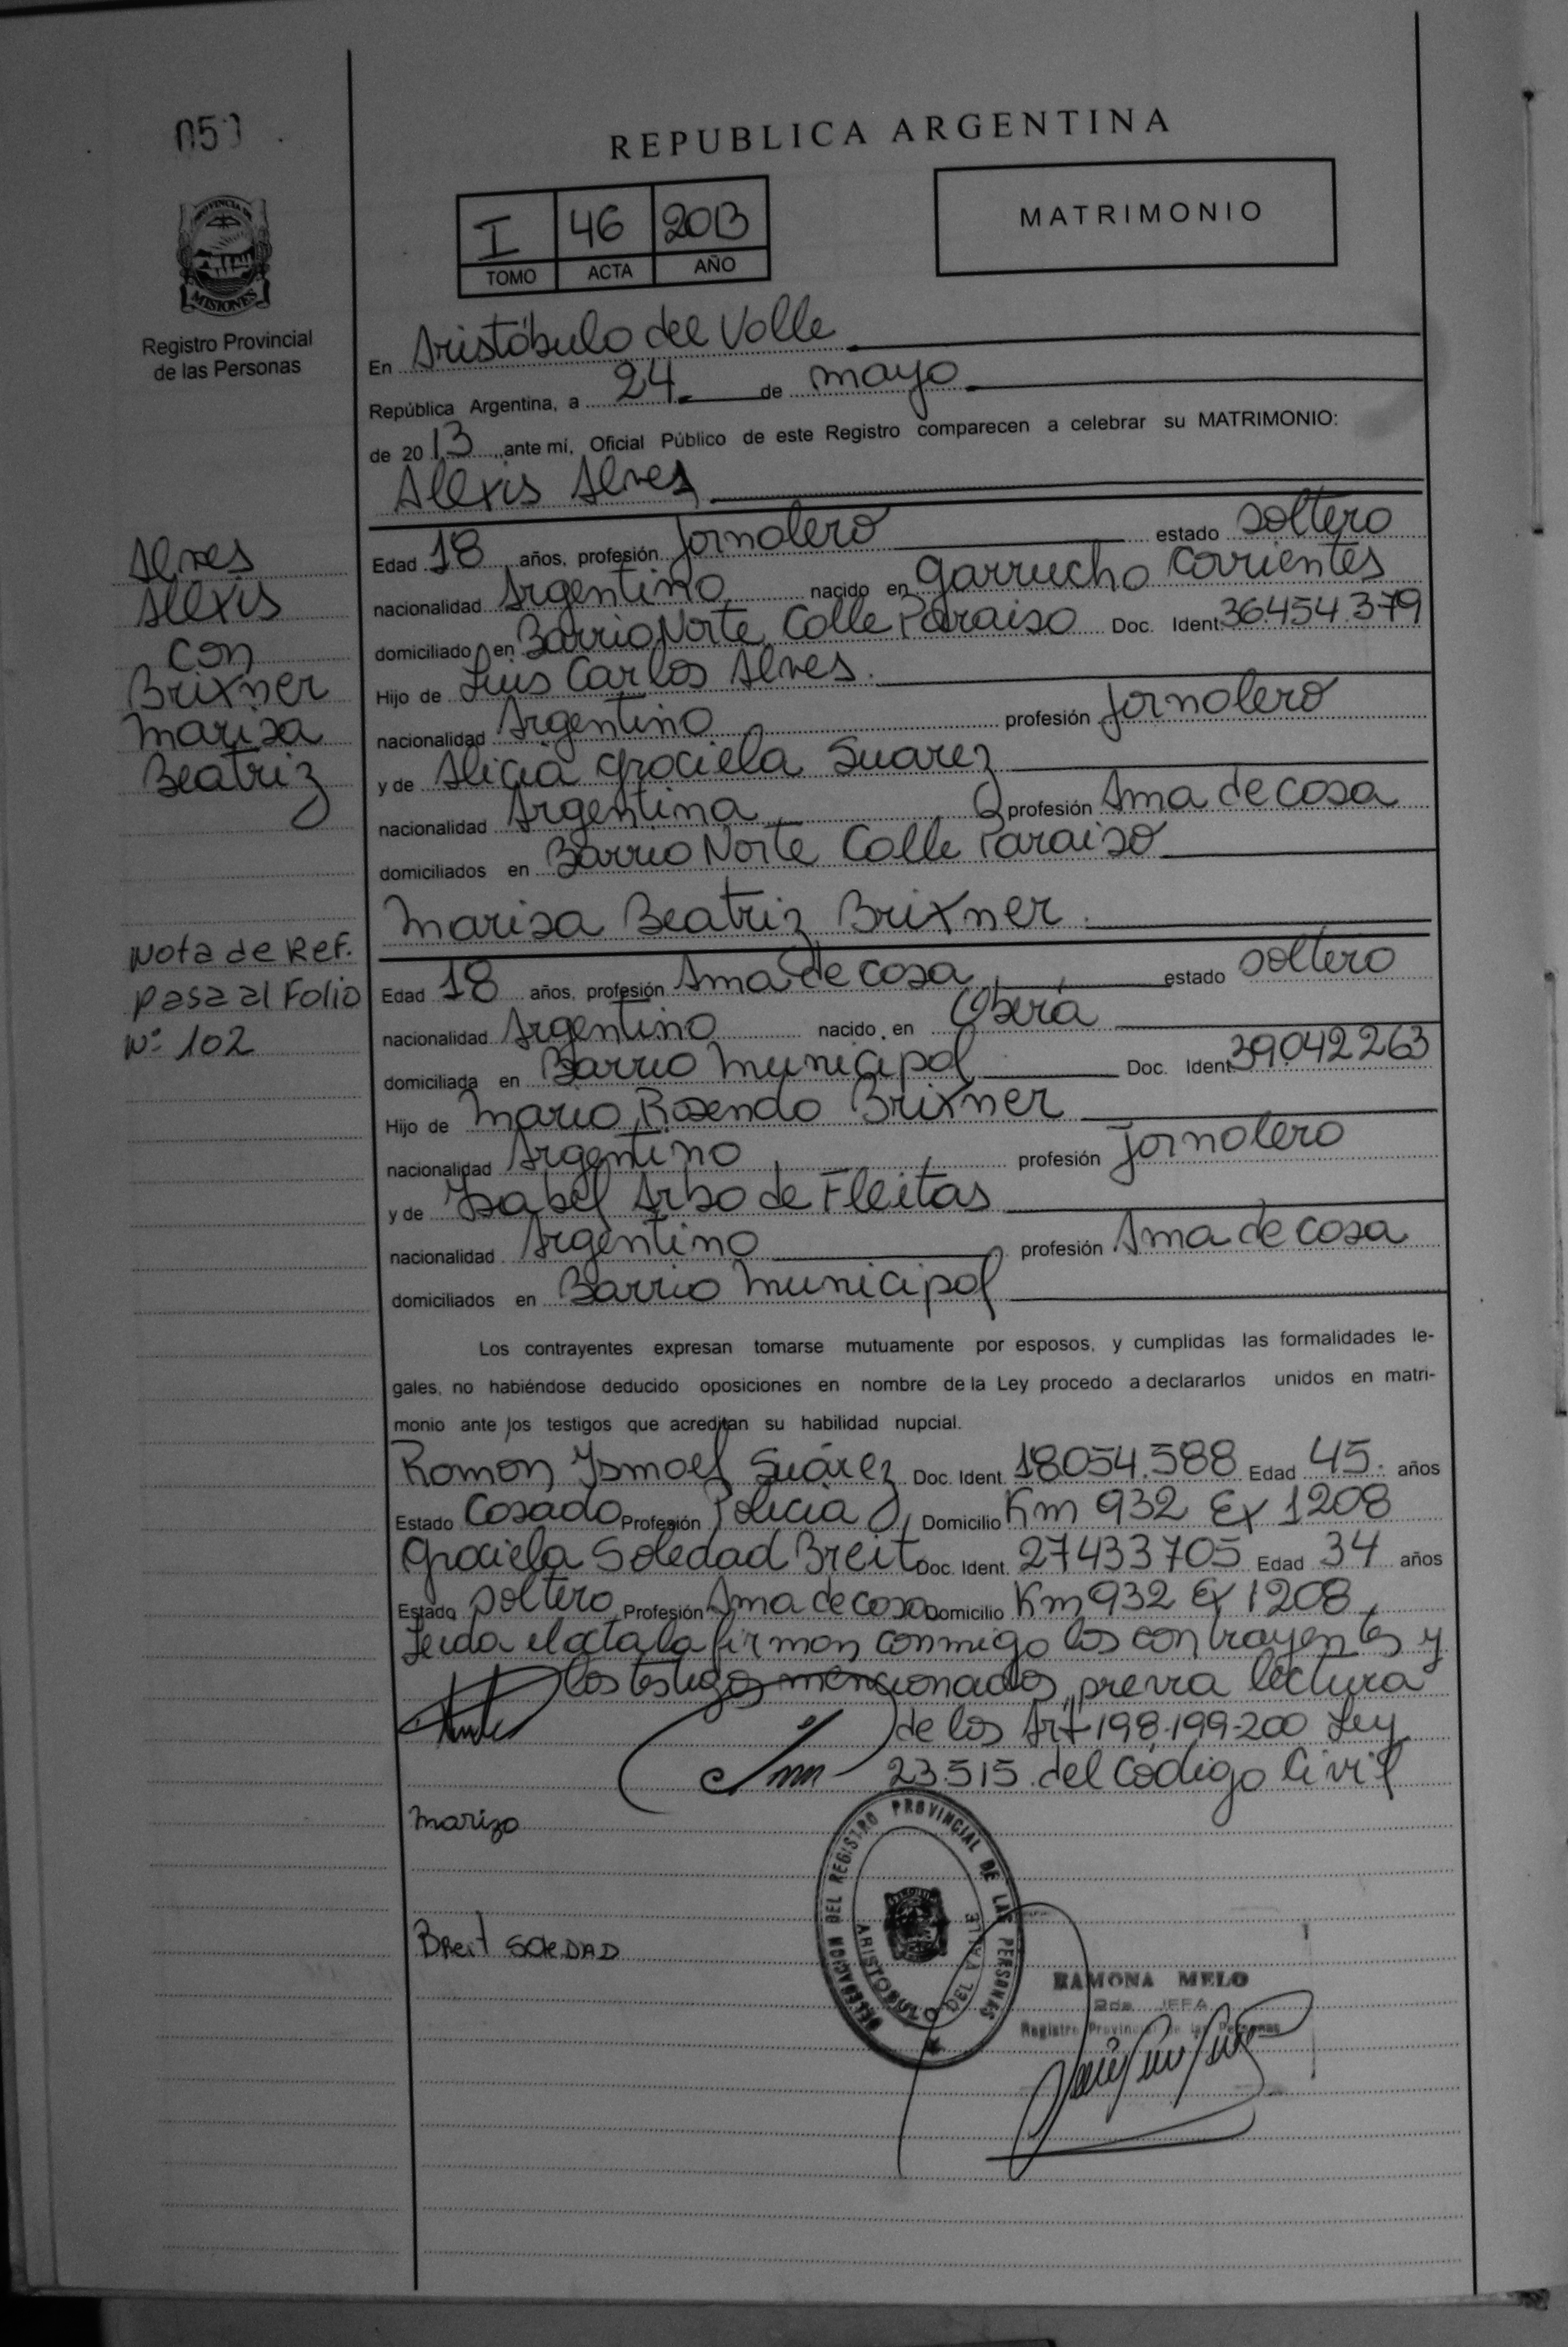 REPUBLICA ARGENTINA
PROVINCIA DE
MISIONES
Registro Provincial
de las Personas
I 46 2013
TOMO ACTA AÑO
MATRIMONIO
En Aristóbulo del Valle
República Argentina, a 24 de mayo
de 2013 ante mí, Oficial Público de este Registro comparecen a celebrar su MATRIMONIO:
Alexis Alves
Edad 18 años, profesión Jornalero estado soltero
nacionalidad Argentino nacido en Garrucho Corrientes
domiciliado en Barrio Norte Calle Paraiso Doc. Ident. 36.454.379
Hijo de Luis Carlos Alves.
nacionalidad Argentino profesión Jornalero
y de Alicia Graciela Suarez
nacionalidad Argentina profesión Ama de casa
domiciliados en Barrio Norte Calle Paraiso
Marisa Beatriz Brixner.
Edad 18 años, profesión Ama de casa estado soltera
nacionalidad Argentina nacido en Oberá
domiciliada en Barrio Municipal Doc. Ident 39.042.263
Hijo de Mario Rosendo Brixner
nacionalidad Argentino profesión Jornalero
y de Isabel Arbo de Fleitas
nacionalidad Argentina profesión Ama de casa
domiciliados en Barrio Municipal
Alves
Alexis
con
Brixner
Marisa
Beatriz
Nota de Ref.
pasa al Folio
Nº 102
Los contrayentes expresan tomarse mutuamente por esposos, y cumplidas las formalidades le-
gales, no habiéndose deducido oposiciones en nombre de la Ley procedo a declararlos unidos en matri-
monio ante los testigos que acreditan su habilidad nupcial.
Ramon Ismael Suárez Doc. Ident. 18.054.588 Edad 45. años
Estado Casado Profesión Policia Domicilio Km 932 Ex 1208
Graciela Soledad Breit Doc. Ident. 27433705 Edad 34 años
Estado soltera Profesión Ama de casa Domicilio Km 932 Ex 1208,
Leida el acta la firman conmigo los contrayentes y
los testigos mencionados, previa lectura
de los Art-198-199-200 Ley
23.515 del Código Civil
Mariza
Breit SOLEDAD
DELEGACION DEL REGISTRO PROVINCIAL DE LAS PERSONAS
ARISTOBULO DEL VALLE
RAMONA MELO
2da. JEFA
Registro Provincial de las Personas